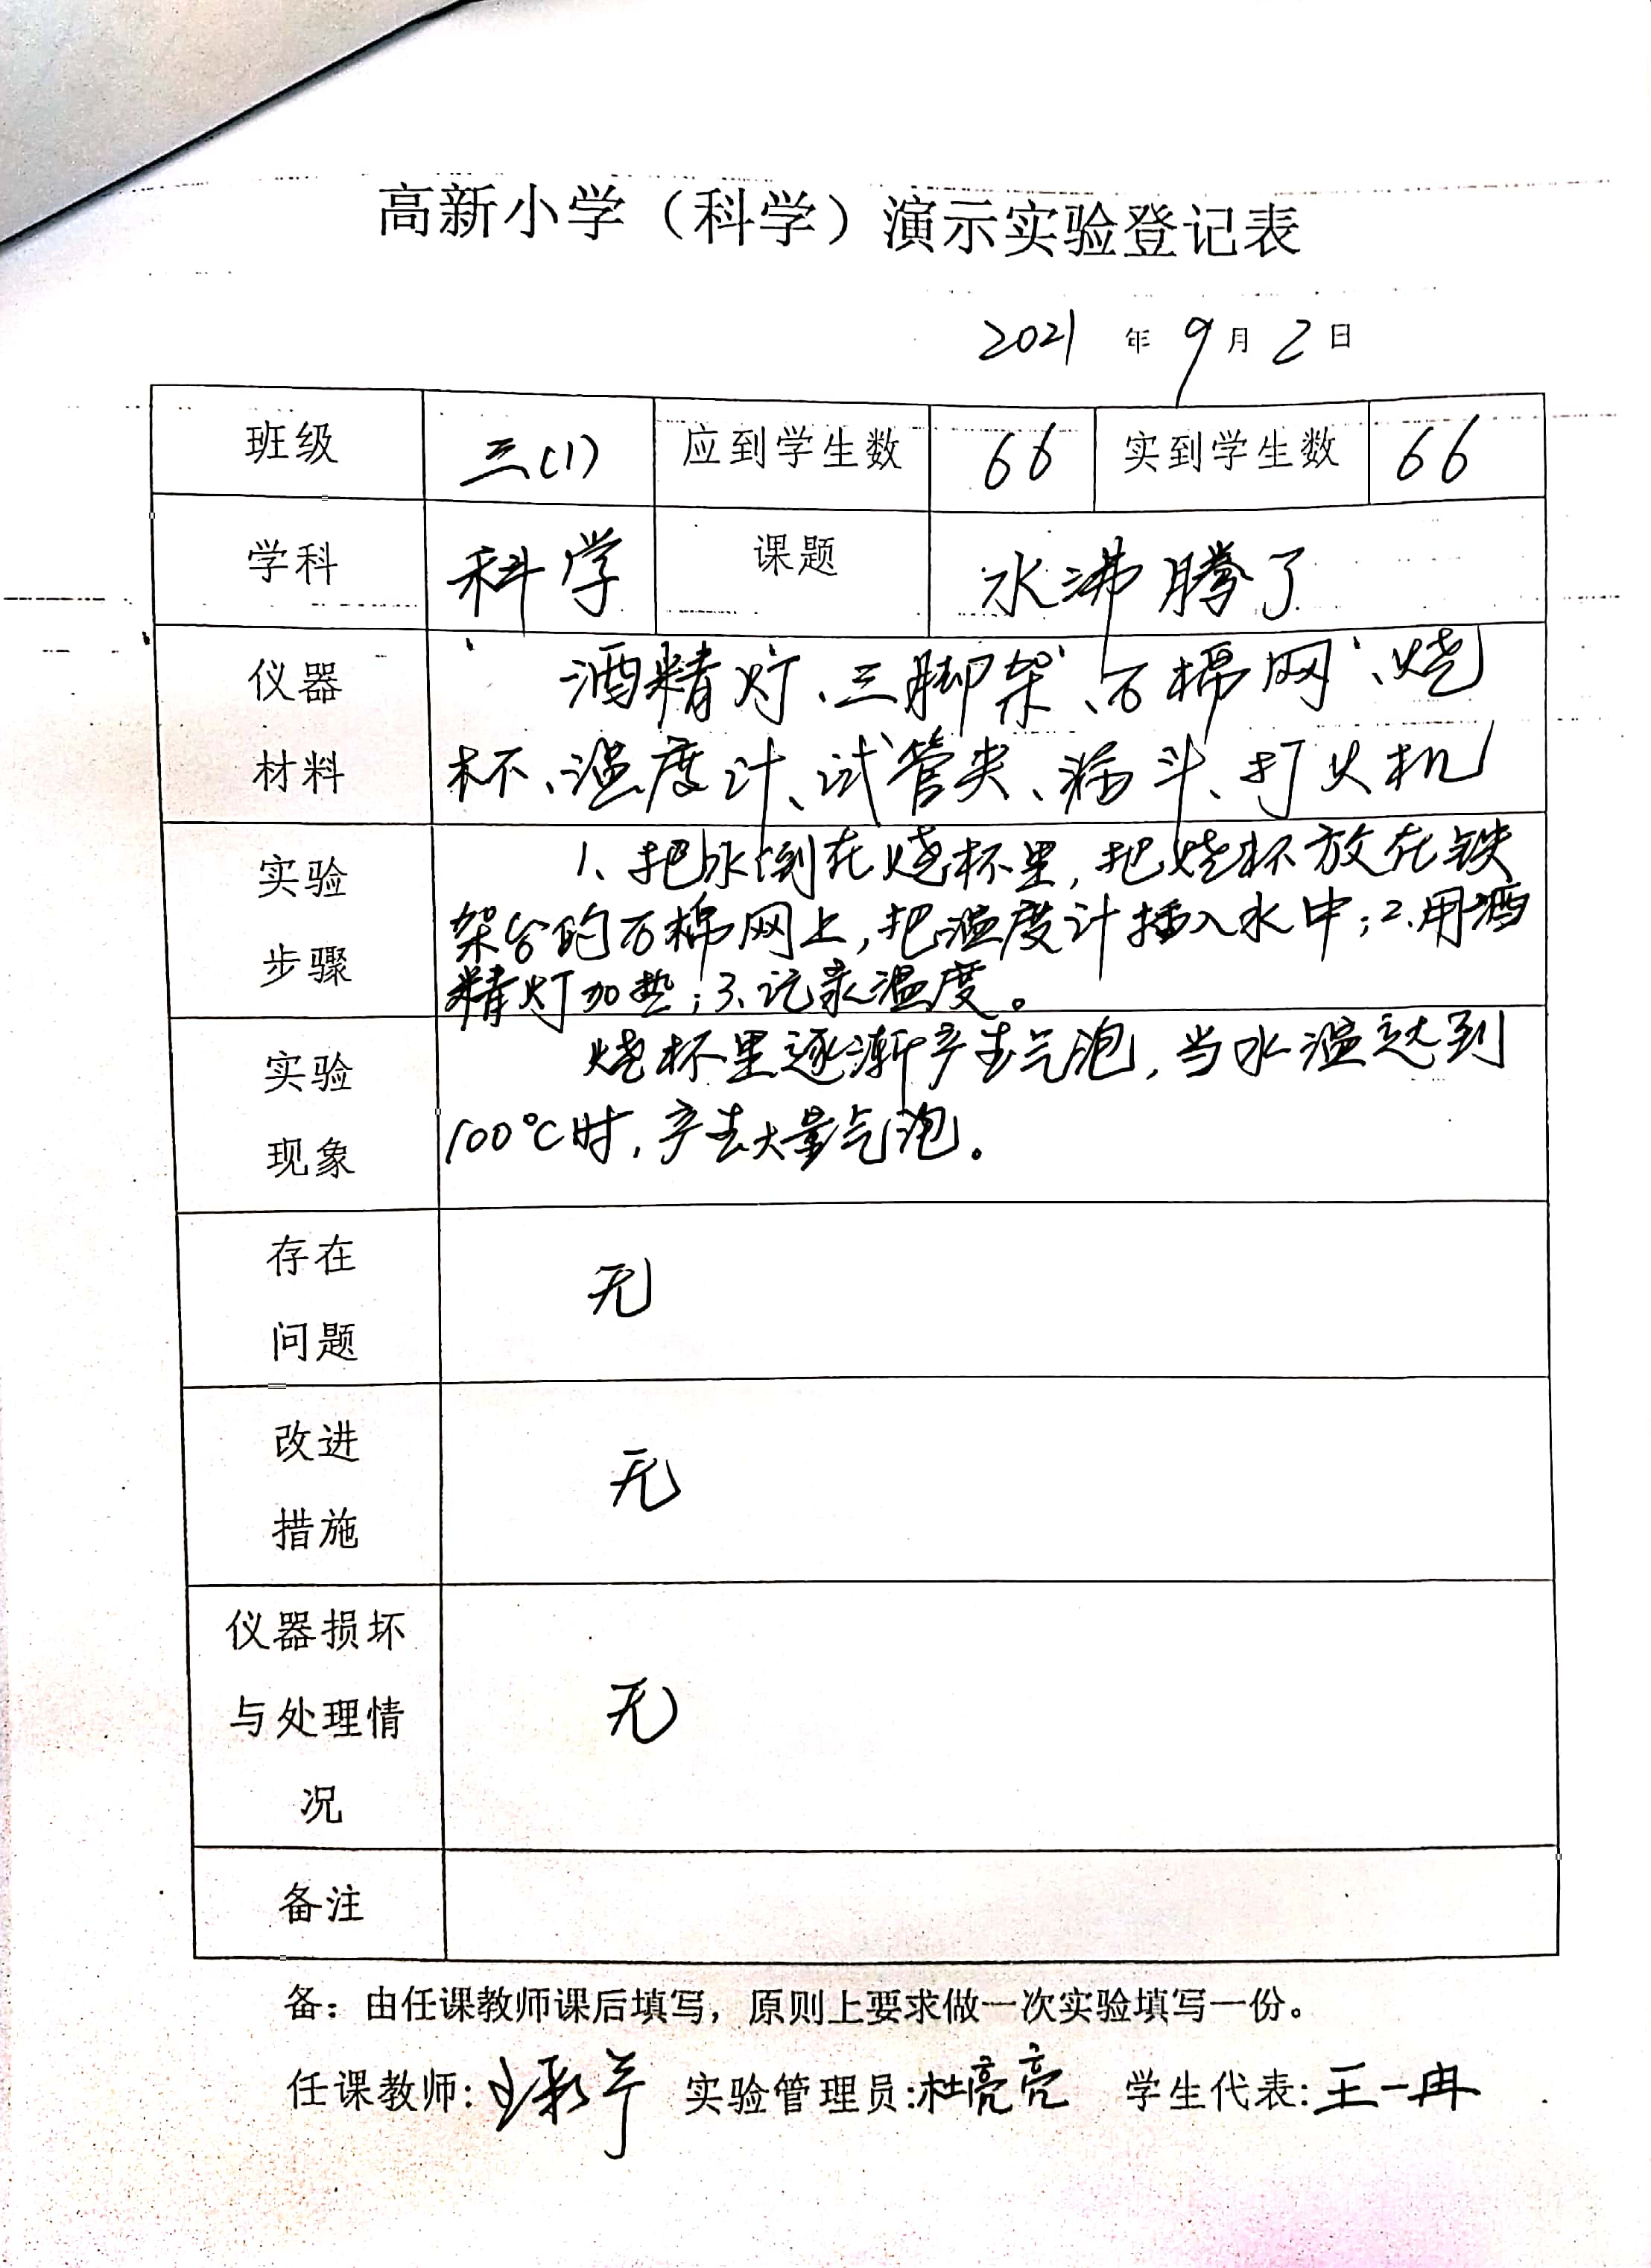 高新小学（科学）演示实验登记表
2021 年 9 月 2 日
班级 三(1) 应到学生数 66 实到学生数 66
学科 科学 课题 水沸腾了
仪器
材料
酒精灯、三脚架、石棉网、烧
杯、温度计、试管夹、漏斗、打火机
实验
步骤
1、把水倒在烧杯里，把烧杯放在铁
架台的石棉网上，把温度计插入水中；2.用酒
精灯加热；3、记录温度。
实验
现象
烧杯里逐渐产生气泡，当水温达到
100℃时，产生大量气泡。
存在
问题
无
改进
措施
无
仪器损坏
与处理情
况
无
备注
备：由任课教师课后填写，原则上要求做一次实验填写一份。
任课教师: 实验管理员:杜亮亮 学生代表:王一冉